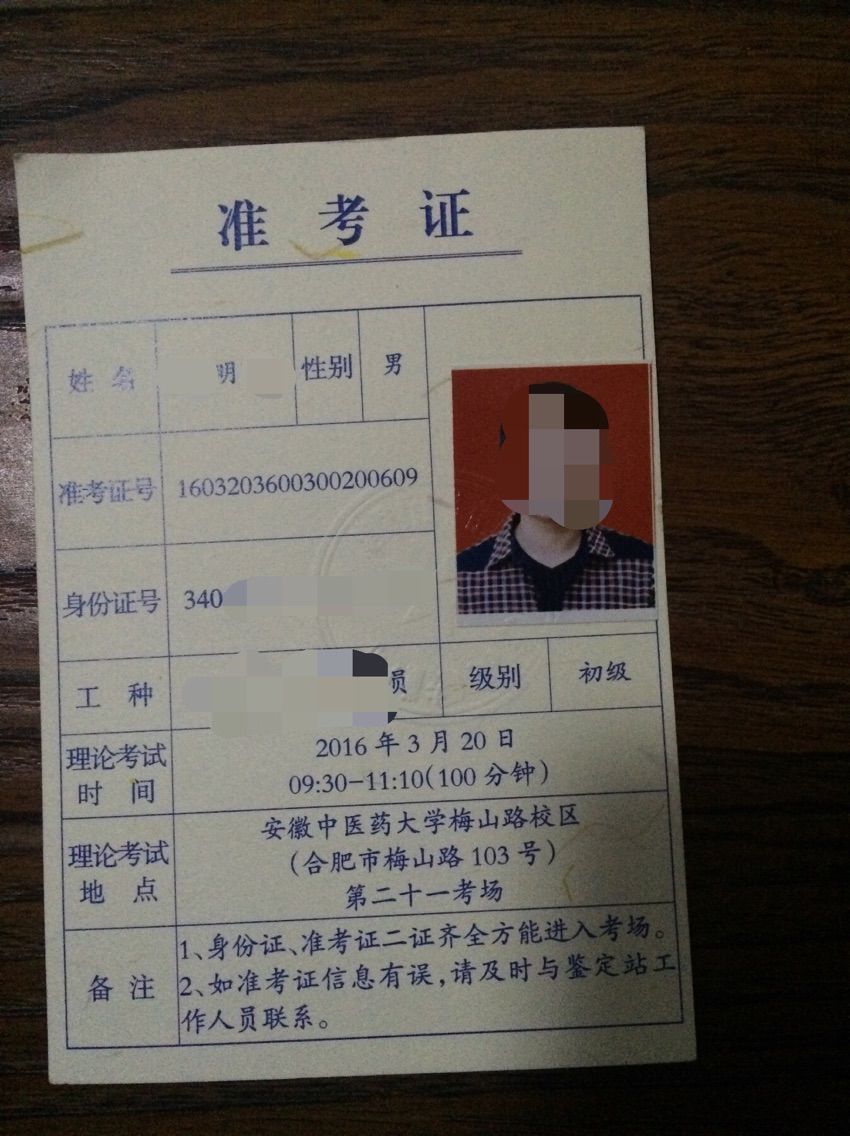 准考证
姓名 明 性别 男
准考证号 1603203600300200609
身份证号 340
工种 员 级别 初级
理论考试
时间
2016年3月20日
09:30-11:10(100分钟)
理论考试
地点
安徽中医药大学梅山路校区
(合肥市梅山路103号)
第二十一考场
备注
1、身份证、准考证二证齐全方能进入考场。
2、如准考证信息有误,请及时与鉴定站工
作人员联系。